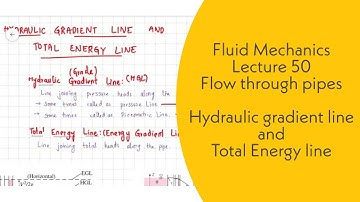 HYDRAULIC GRADIENT LINE AND
TOTAL ENERGY LINE
(Grade)
Hydraulic Gradient Line: (HGL)
Line joining pressure heads along the
→ some times called as pressure Line
→ some times called as Piezometric Line.
Total Energy Line: (Energy Gradient Line
Line joining total heads along the pipe.
(Horizontal)
EGL
HGL
Fluid Mechanics
Lecture 50
Flow through pipes
Hydraulic gradient line
and
Total Energy line